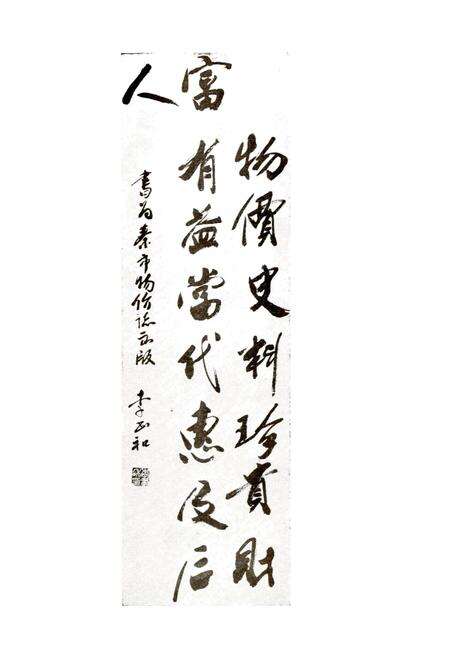 物價史料珍貴財
富有益當代惠及后
人
書为秦市物价志出版
李正和